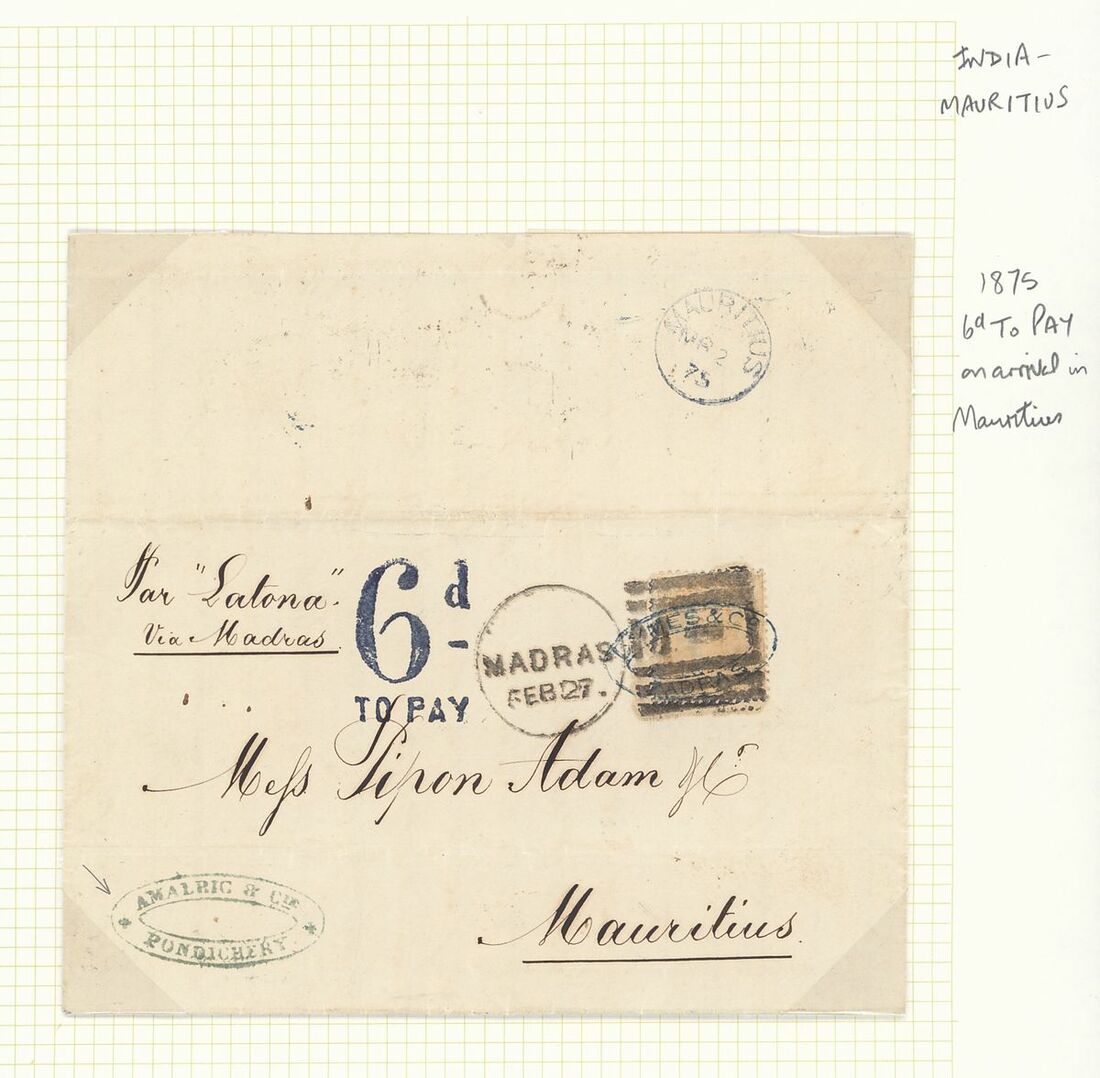 INDIA -
MAURITIUS
1875
6d To PAY
on arrival in
Mauritius
MAURITIUS
MR 2
75
Par "Latona"
Via Madras
6d
TO PAY
MADRAS
FEB 27.
& Co
MADRAS
Mess Pipon Adam & Co
AMALRIC & CIE
PONDICHERY.
Mauritius